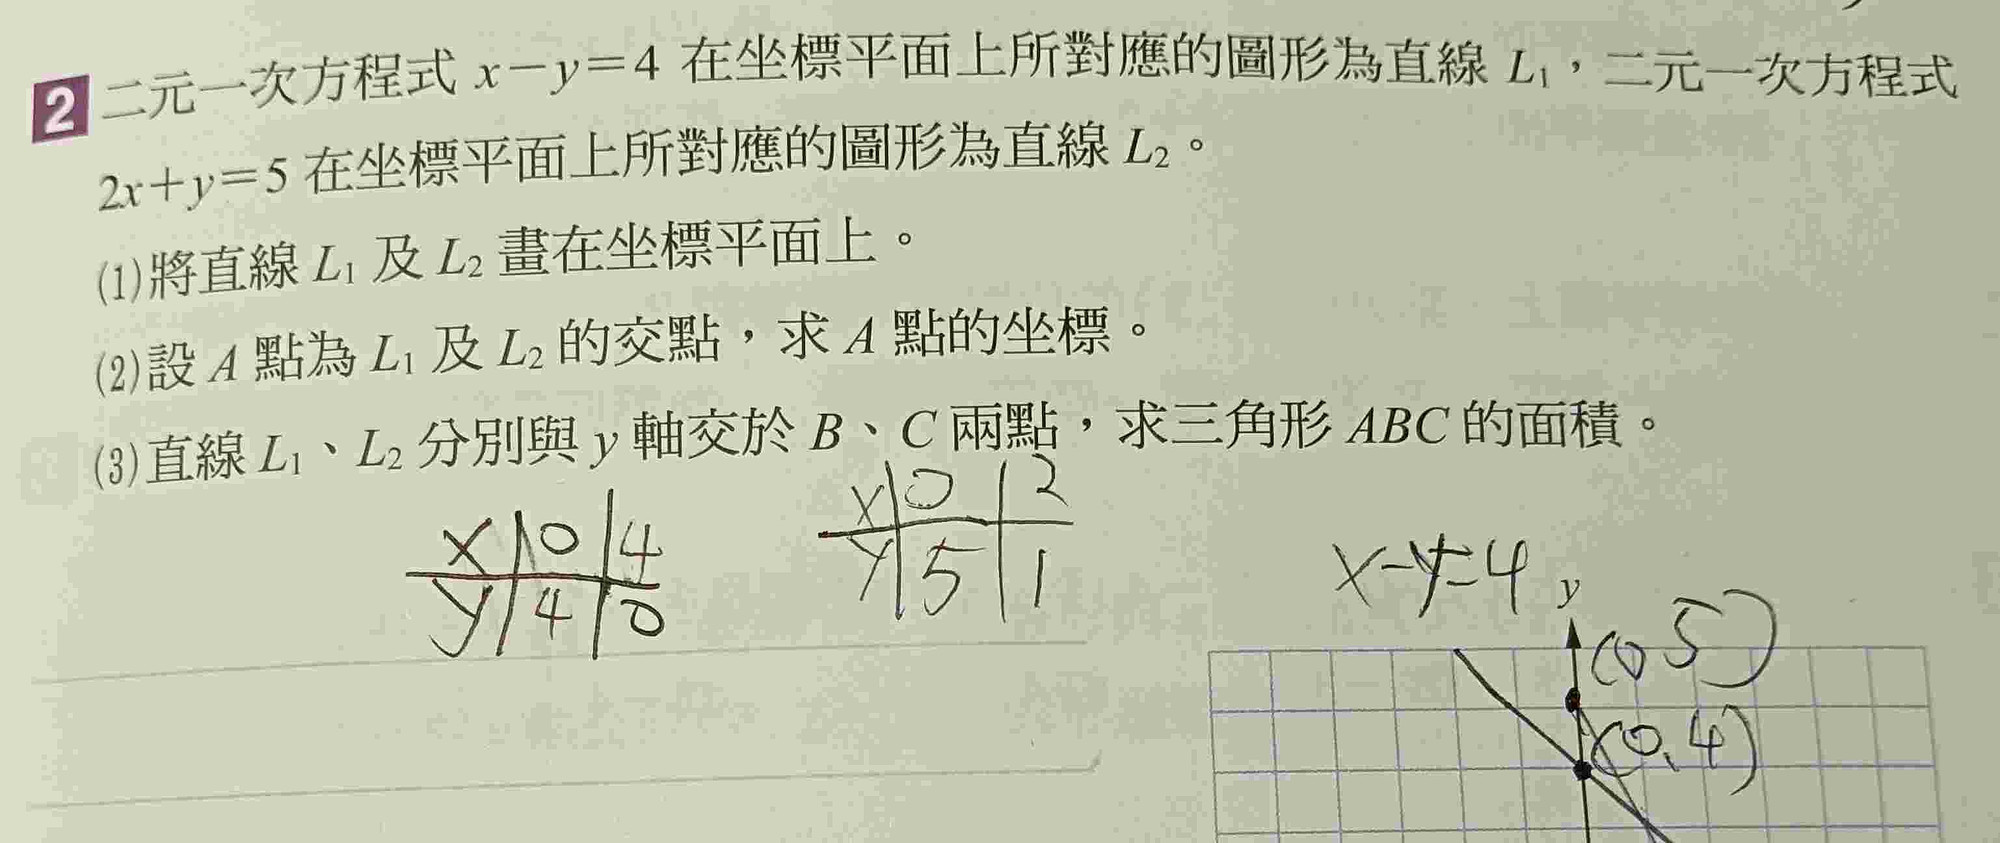 2 二元一次方程式 x－y＝4 在坐標平面上所對應的圖形為直線 L₁，二元一次方程式
2x＋y＝5 在坐標平面上所對應的圖形為直線 L₂。
(1)將直線 L₁ 及 L₂ 畫在坐標平面上。
(2)設 A 點為 L₁ 及 L₂ 的交點，求 A 點的坐標。
(3)直線 L₁、L₂ 分別與 y 軸交於 B、C 兩點，求三角形 ABC 的面積。
x 0 4
y 4 0
x 0 2
y 5 1
x-y=4
y
(0 5)
(0,4)